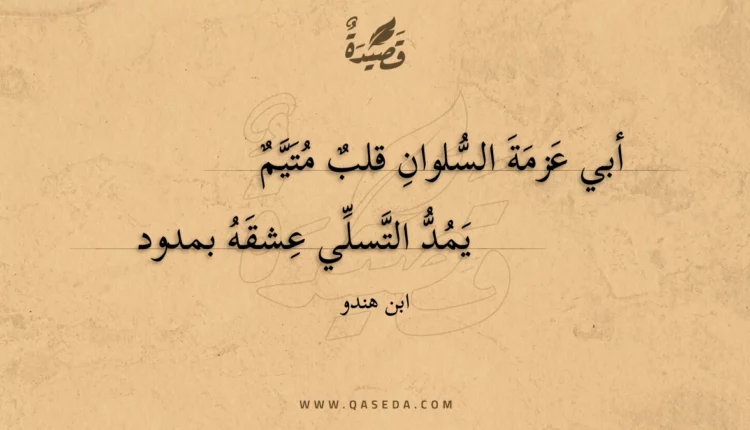 قَصِيْدَةٌ
أبي عَزمَةَ السُّلوانِ قلبٌ مُتَيَّمٌ
يَمُدُّ التَّسلِّي عِشقَهُ بمدود
ابن هندو
WWW.QASEDA.COM